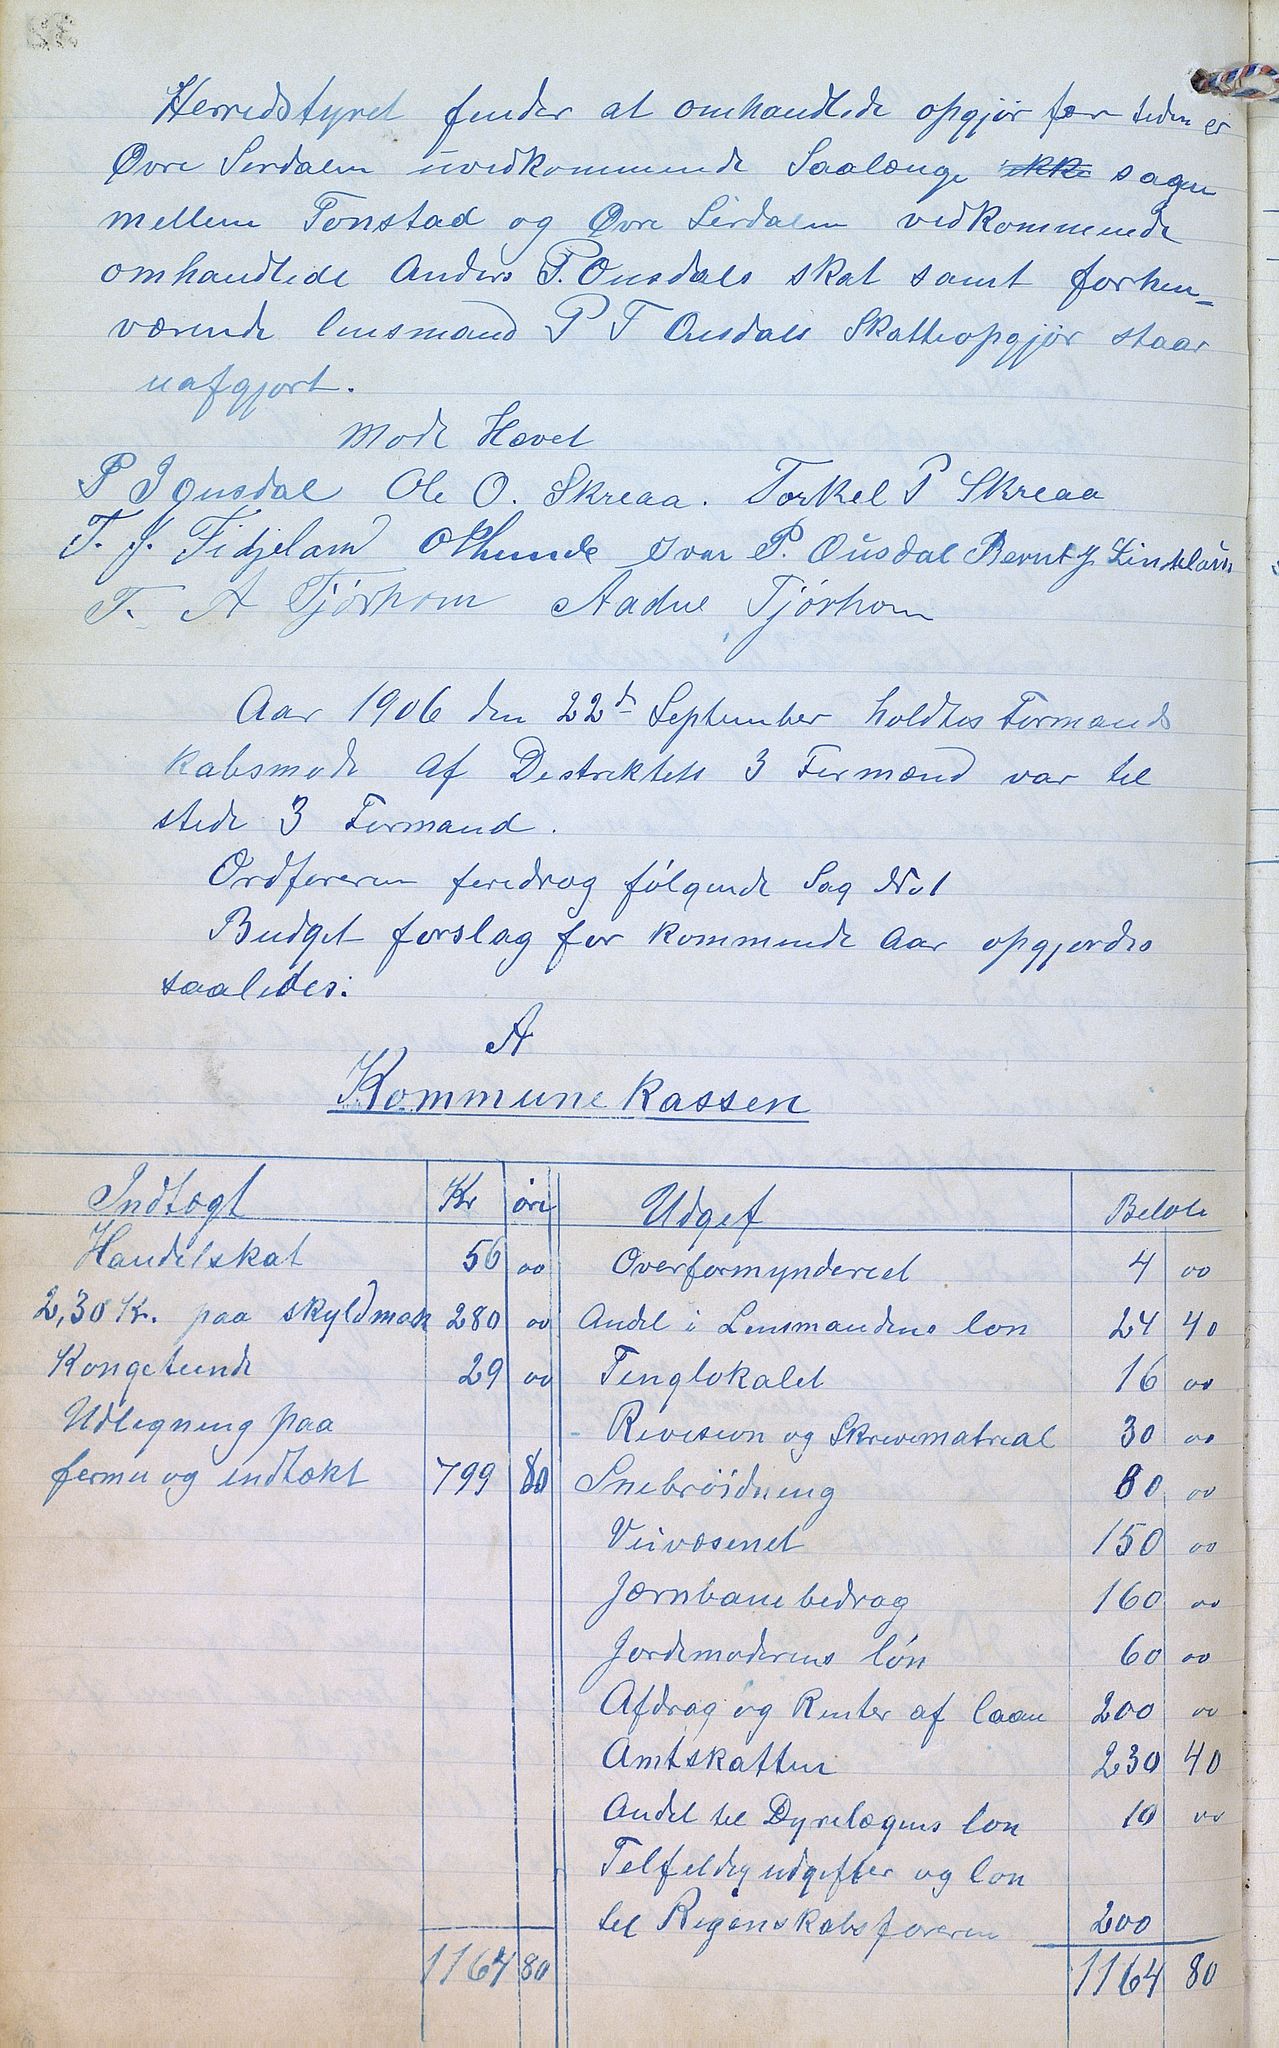 Herredstyret finder at omhandlede opgjör for tiden er
Øvre Sirdalen uvedkommende Saalænge ikke sagen
mellem Tonstad og Øvre Sirdalen vedkommende
omhandlede Anders P. Ousdals skat samt forhen-
værende lensmand P T Ousdals Skatteopgjör staar
uafgjort.
Mode Hævet
P I Ousdal Ole O. Skreaa. Torkel P Skreaa
T. J. Fidjeland Ivar P. Ousdal Bernt J. Lindeland
T. A Tjørhom Aadne Tjörhom
Aar 1906 den 22d September holdtes Formands
kabsmode af Destriktets 3 Formænd var til
stede 3 Formænd.
Ordforeren foredrog følgende Sag No 1
Budget forslag for kommende Aar opgjordes
saaledes:
A
Kommunekassen
Indtægt Kr öre Udgif Beløb
Handelskat 56 00 Overformynderiet 4 00
2,30 Kr. paa skyldmark 280 00 Andel i Lensmandens lon 24 40
Kongetiende 29 00 Tinglokalet 16 00
Udlegning paa Revision og Skrivematrial 30 00
formu og indtækt 799 80 Snebröidning 80 00
Veivæsenet 150 00
Jærnbanebedrag 160 00
Jordemoderens lön 60 00
Afdrag og Renter af laan 200 00
Amtskatten 230 40
Andel til Dyrelægens lon 10 00
Telfeldig udgifter og lon
til Regenskabsforeren 200
1164 80 1164 80